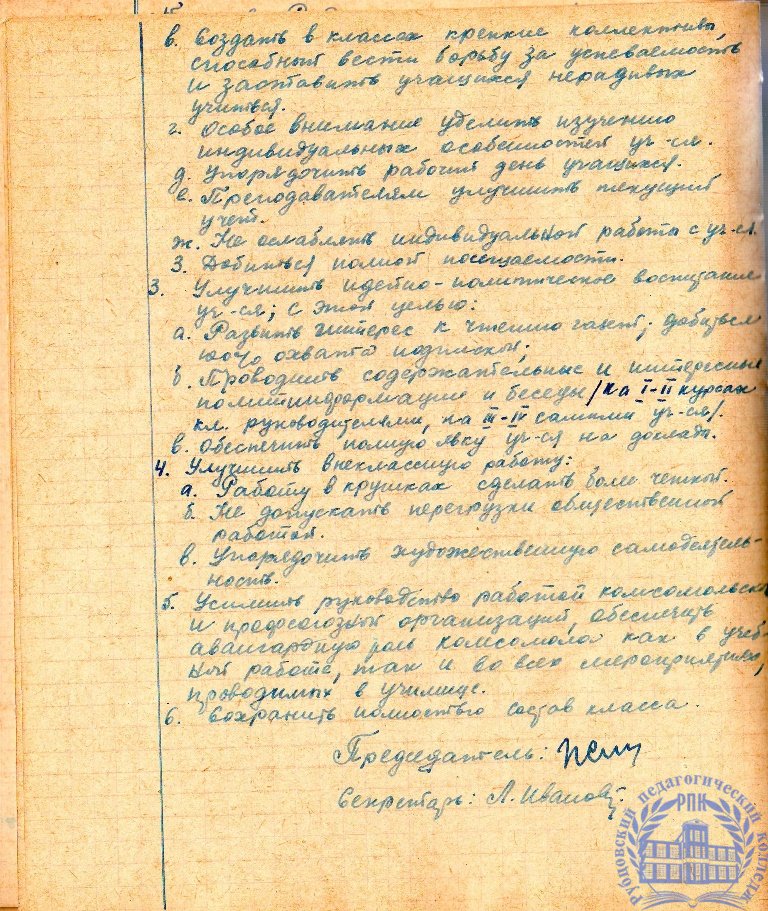 в. Создать в классах крепкие коллективы,
способный вести борьбу за успеваемость
и заставить учащихся нерадивых
учиться.
г. Особое внимание уделить изучению
индивидуальных особенностей уч-ся.
д. Упорядочить рабочий день учащихся.
е. Преподавателям улучшить текущий
учет.
ж. Не ослаблять индивидуальной работы с уч-ся.
з. Добиться полной посещаемости.
3. Улучшить идейно-политическое воспитание
уч-ся; с этой целью:
а. Развить интерес к чтению газет; добиться
100% охвата подпиской;
б. Проводить содержательные и интересные
политинформации и беседы /на I-II курсах
кл. руководителями, на III-IV самими уч-ся/.
в. Обеспечить полную явку уч-ся на доклады.
4. Улучшить внеклассную работу:
а. Работу в кружках сделать более четкой.
б. Не допускать перегрузки общественной
работой.
в. Упорядочить художественную самодеятель-
ность.
5. Усилить руководство работой комсомольской
и профсоюзной организаций, обеспечить
авангардную роль комсомола как в учеб-
ной работе, так и во всех мероприятиях,
проводимых в училище.
6. Сохранить полностью состав класса.
Председатель:
Секретарь: Л. Иванова.
Рубцовский педагогический колледж
РПК